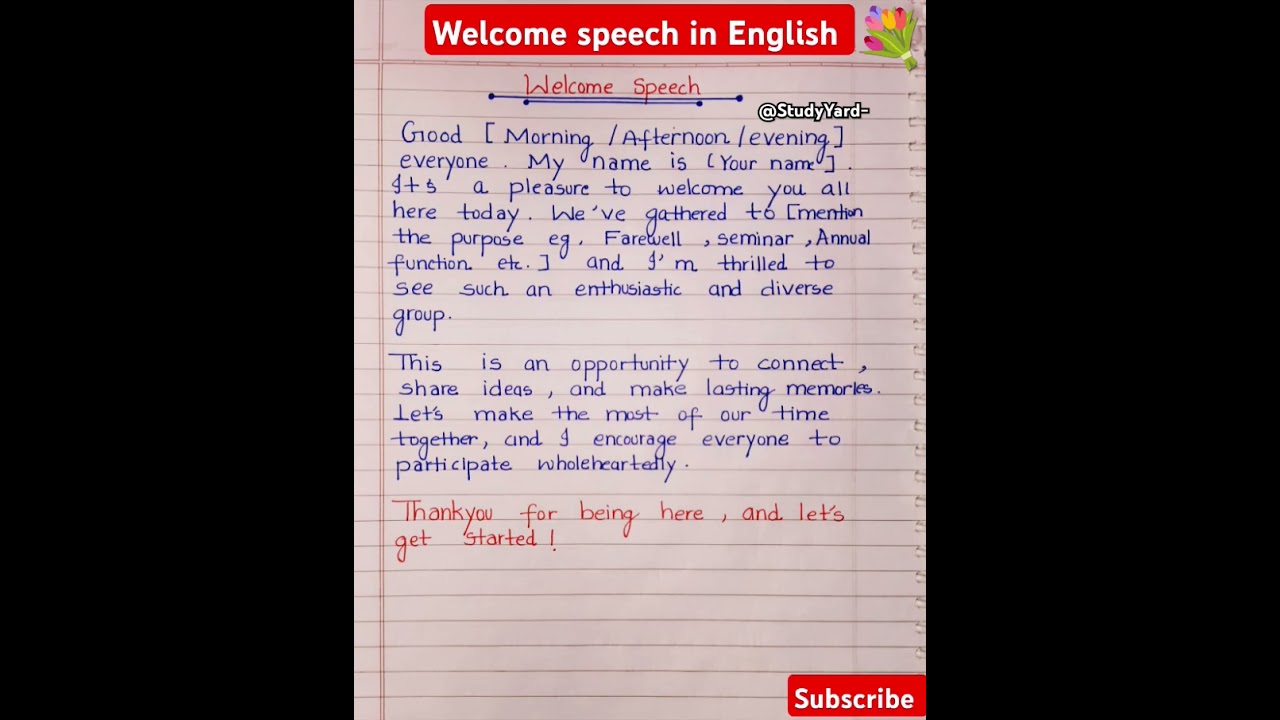 Welcome speech in English
Welcome Speech
@StudyYard-
Good [ Morning / Afternoon / evening ]
everyone . My name is [ Your name ] .
It's a pleasure to welcome you all
here today. We've gathered to [mention
the purpose eg. Farewell , seminar , Annual
function etc. ] and I'm thrilled to
see such an enthusiastic and diverse
group.
This is an opportunity to connect ,
share ideas , and make lasting memories.
Let's make the most of our time
together, and I encourage everyone to
participate wholeheartedly .
Thankyou for being here , and let's
get started !
Subscribe